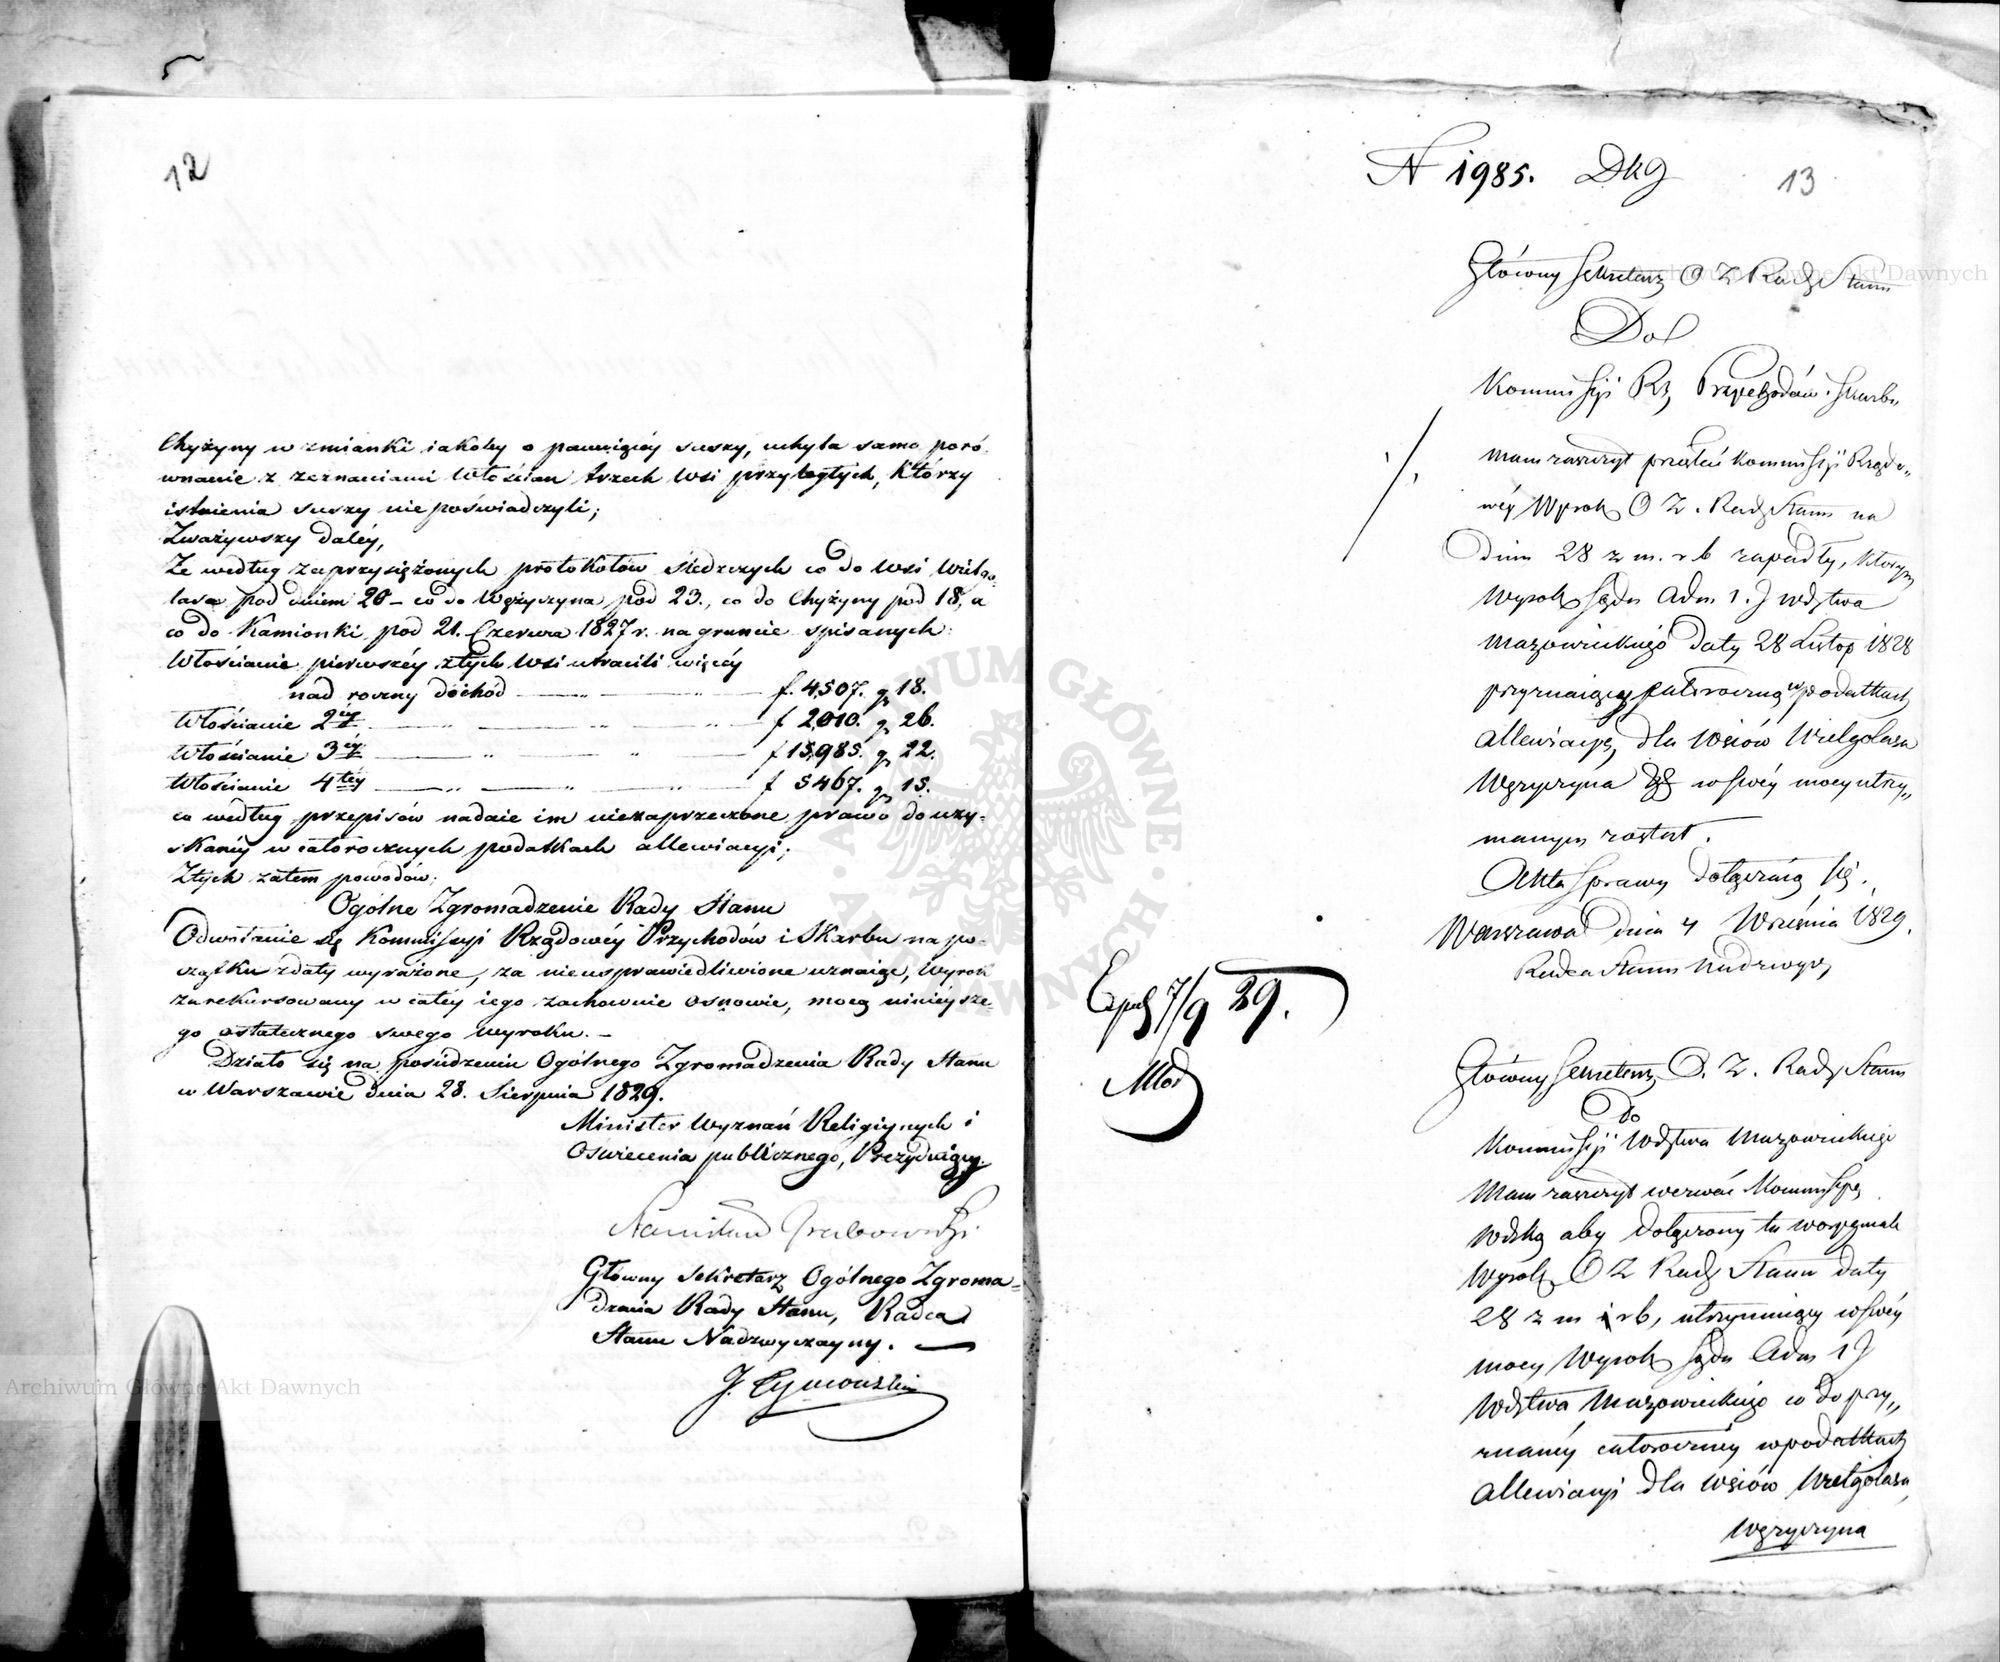 12
Chyżyny w zmianki iakoby o panuiącéy suszy, uchyla samo poró-
wnanie z zeznaniami Włościan trzech wsi przyległych, którzy
istnienia suszy nie poświadczyli;
Zważywszy daléy,
Że według zaprzysiężonych protokółów śledczych co do wsi Wielgo-
lasa pod dniem 20 – co do Wężyczyna pod 23., co do Chyżyny pod 18, a
co do Kamionki pod 21. Czerwca 1827 r. na gruncie spisanych
Włościanie pierwszéy z tych wsi utracili więcéy
nad roczny dochód f. 4,507. g 18.
Włościanie 2iéy f 2,010. g 26.
Włościanie 3iéy f 15,985. g 22.
Włościanie 4téy f 5467. g 15.
co według przepisów nadaie im niezaprzeczone prawo do uzy-
skania w całorocznych podatkach allewiacyi;
Z tych zatem powodów;
Ogólne Zgromadzenie Rady Stanu
Odwołanie się Kommissyi Rządowéy Przychodów i Skarbu na po-
czątku z daty wyrażone, za nieusprawiedliwione uznaiąc, Wyrok
zarekursowany w całéy iego zachownie osnowie, mocą ninieysze-
go ostatecznego swego wyroku. –
Działo się na posiedzeniu Ogólnego Zgromadzenia Rady Stanu
w Warszawie dnia 28. Sierpnia 1829.
Minister Wyznań Religiynych i
Oświecenia publicznego, Prezyduiący
Stanisław Grabowski
Główny Sekretarz Ogólnego Zgroma-
dzenia Rady Stanu, Radca
Stanu Nadzwyczayny. –
J. Tymowski
N 1985. 13
Główny Sekretarz O Z Rady Stanu
Do
Kommissyi Rz Przychodów i Skarbu
Mam zaszczyt przesłać Kommissyi Rządo„
wéy Wyrok O Z. Rady Stanu na
Dniu 28 z m. r b zapadły, którym
Wyrok Sądu Adm. 1. J Wdztwa
Mazowieckiego daty 28 Listop 1828
przyznaiący całoroczną w podatkach
allewiacyę dla Wsiów Wielgolasa
Wężyczyna w swéy mocy utrzy„
manym został.
Akta sprawy dołączaią się.
Warszawa dnia 4 Września 1829.
Radca Stanu Nadzwycz
7/9 29.
Główny Sekretarz O. Z. Rady Stanu
Do
Kommissyi Wdztwa Mazowieckiego
Mam zaszczyt wezwać Kommissyę
Wdzką aby dołączony tu w
Wyrok O Z Rady Stanu daty
28 z m i r b, utrzymuiący w swéy
mocy Wyrok Sądu Adm 1 J
Wdztwa Mazowieckiego co do przy„
znanéy całorocznéy w podatkach
allewiacyi dla wsiów Wielgolasa,
Wężyczyna
Archiwum Główne Akt Dawnych
Archiwum Główne Akt Dawnych
ARCHIWUM GŁÓWNE AKT DAWNYCH